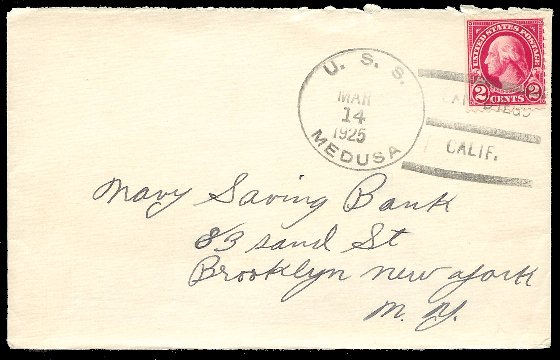 UNITED STATES POSTAGE
2 CENTS 2
U. S. S.
MAR
14
1925
MEDUSA
SAN DIEGO
CALIF.
Navy Saving Bank
83 Sand St
Brooklyn New York
N. Y.